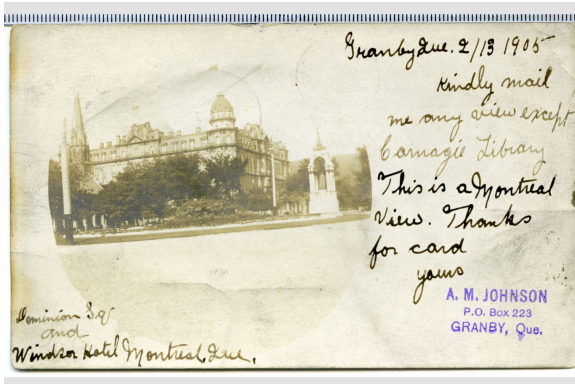 Granby Que. 2/13 1905
Kindly mail
me any view except
Carnagie Library
This is a Montreal
View. Thanks
for card
yours
A. M. JOHNSON
P.O. Box 223
GRANBY, Que.
Dominion Sq
and
Windsor Hotel Montreal, Que.